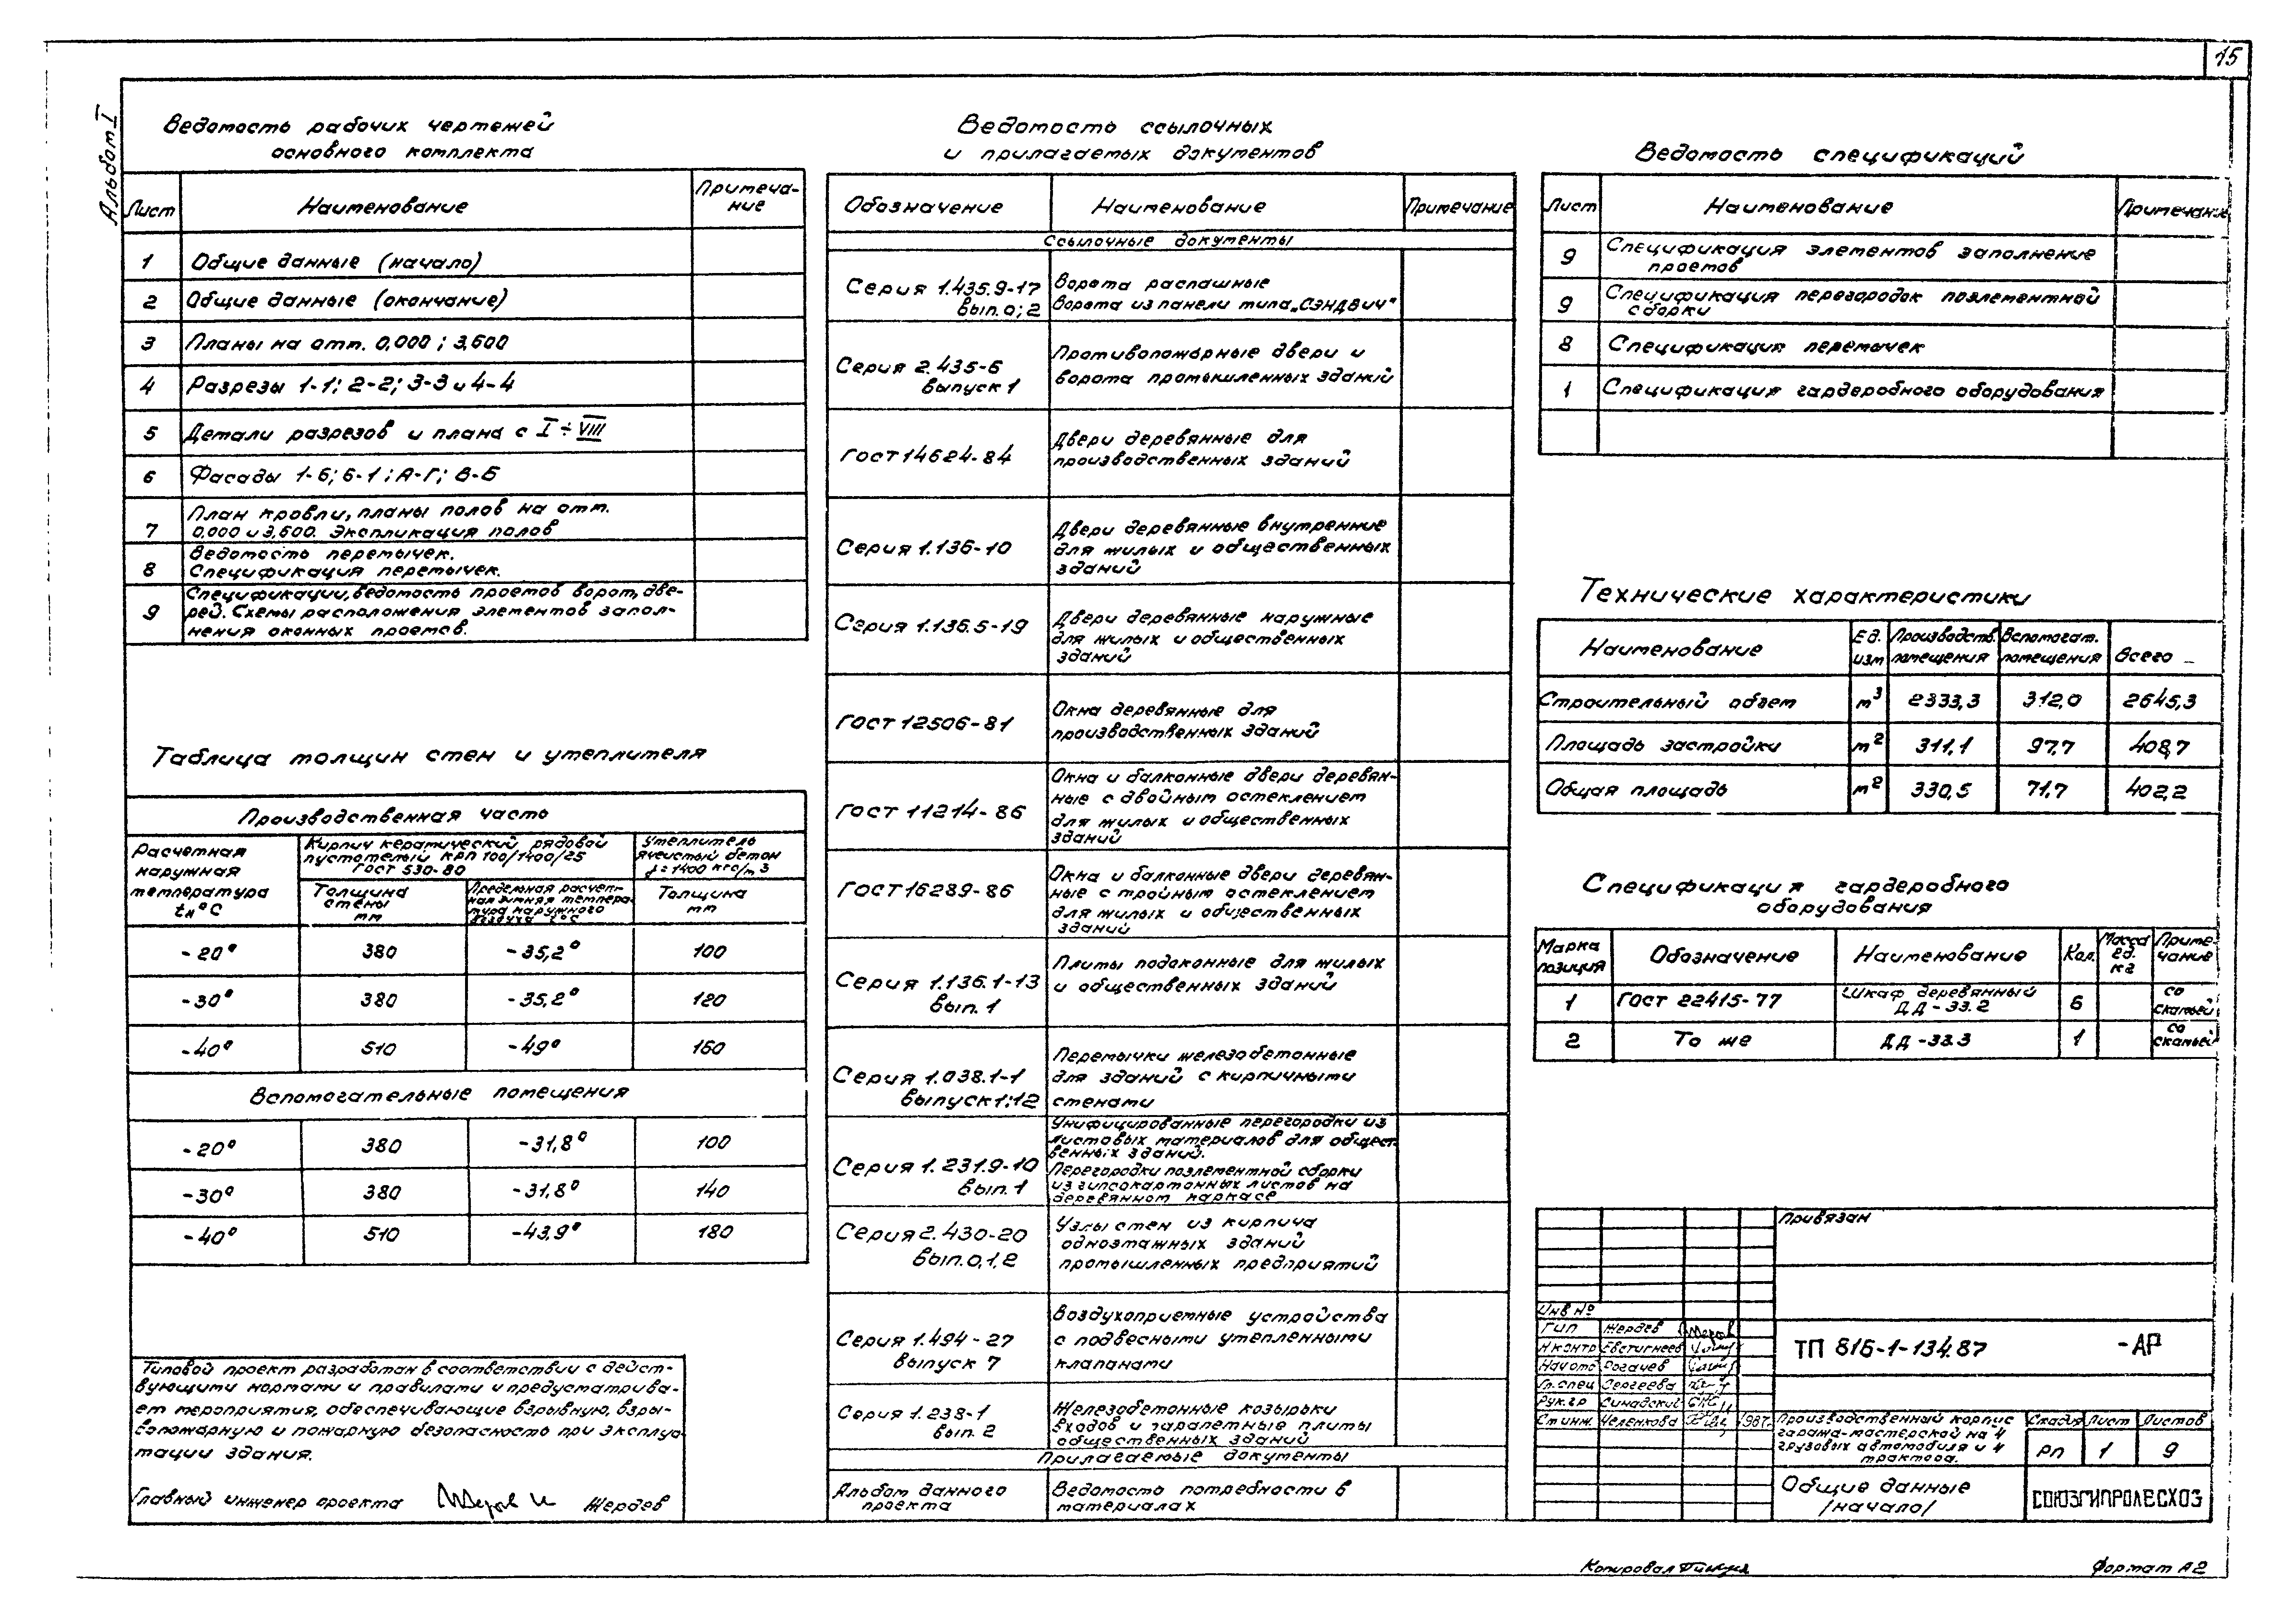 15
Альбом I
Ведомость рабочих чертежей
основного комплекта
Лист Наименование Примеча-
ние
1 Общие данные (начало)
2 Общие данные (окончание)
3 Планы на отм. 0,000; 3,600
4 Разрезы 1-1; 2-2; 3-3 и 4-4
5 Детали разрезов и плана с I ÷ VIII
6 Фасады 1-6; 6-1; А-Г; В-Б
План кровли, планы полов на отм.
7 0,000 и 3,600. Экспликация полов
Ведомость перемычек.
8 Спецификация перемычек.
Спецификации, ведомость проемов ворот, две-
9 рей. Схемы расположения элементов запол-
нения оконных проемов.
Таблица толщин стен и утеплителя
Производственная часть
Расчетная
наружная
температура
tн°С
Кирпич керамический рядовой
пустотелый КРП 100/1400/25
ГОСТ 530-80
Утеплитель
ячеистый бетон
γ=1400 кгс/м3
Толщина
стены
мм
Предельная расчет-
ная зимняя темпера-
тура наружного
воздуха t°С
Толщина
мм
-20° 380 -35,2° 100
-30° 380 -35,2° 120
-40° 510 -49° 160
Вспомогательные помещения
-20° 380 -31,8° 100
-30° 380 -31,8° 140
-40° 510 -43,9° 180
Типовой проект разработан в соответствии с дейст-
вующими нормами и правилами и предусматрива-
ет мероприятия, обеспечивающие взрывную, взры-
вопожарную и пожарную безопасность при эксплуа-
тации здания.
Главный инженер проекта Жердев
Ведомость ссылочных
и прилагаемых документов
Обозначение Наименование Примечание
Ссылочные документы
Серия 1.435.9-17 Ворота распашные
вып. 0; 2 Ворота из панели типа „СЭНДВИЧ"
Серия 2.435-6 Противопожарные двери и
выпуск 1 ворота промышленных зданий
ГОСТ 14624-84 Двери деревянные для
производственных зданий
Серия 1.136-10 Двери деревянные внутренние
для жилых и общественных
зданий
Серия 1.136.5-19 Двери деревянные наружные
для жилых и общественных
зданий
ГОСТ 12506-81 Окна деревянные для
производственных зданий
ГОСТ 11214-86 Окна и балконные двери деревян-
ные с двойным остеклением
для жилых и общественных
зданий
ГОСТ 16289-86 Окна и балконные двери деревян-
ные с тройным остеклением
для жилых и общественных
зданий
Серия 1.136.1-13 Плиты подоконные для жилых
вып. 1 и общественных зданий
Серия 1.038.1-1 Перемычки железобетонные
для зданий с кирпичными
выпуск 1;12 стенами
Серия 1.231.9-10 Унифицированные перегородки из
вып. 1 листовых материалов для общест-
венных зданий.
Перегородки поэлементной сборки
из гипсокартонных листов на
деревянном каркасе
Серия 2.430-20 Узлы стен из кирпича
вып. 0,1,2 одноэтажных зданий
промышленных предприятий
Серия 1.494-27 Воздухоприемные устройства
выпуск 7 с подвесными утепленными
клапанами
Серия 1.238-1 Железобетонные козырьки
вып. 2 входов и парапетные плиты
общественных зданий
Прилагаемые документы
Альбом данного Ведомость потребности в
проекта материалах
Ведомость спецификаций
Лист Наименование Примечание
9 Спецификация элементов заполнение
проемов
9 Спецификация перегородок поэлементной
сборки
8 Спецификация перемычек
1 Спецификация гардеробного оборудования
Технические характеристики
Наименование Ед. изм Производств. помещения Вспомогат. помещения Всего
Строительный объем м³ 2333,3 312,0 2645,3
Площадь застройки м² 311,1 97,7 408,7
Общая площадь м² 330,5 71,7 402,2
Спецификация гардеробного
оборудования
Марка позиция Обозначение Наименование Кол. Масса ед. кг Приме-чание
1 ГОСТ 22415-77 Шкаф деревянный ДД-33.2 6 со скамьей
2 То же ДД-33.3 1 со скамьей
Привязан
Инв №
ГИП Жердев
Н контр Евстигнеев
Нач отд Рогачев
Гл. спец Сергеева
Рук. гр Синадский
Ст инж. Челенкова 1987г.
ТП 816-1-134.87 -АР
Производственный корпус
гаража-мастерской на 4
грузовых автомобиля и 4
трактора.
Стадия Лист Листов
РП 1 9
Общие данные
/начало/
СОЮЗГИПРОЛЕСХОЗ
Копировал
Формат А2